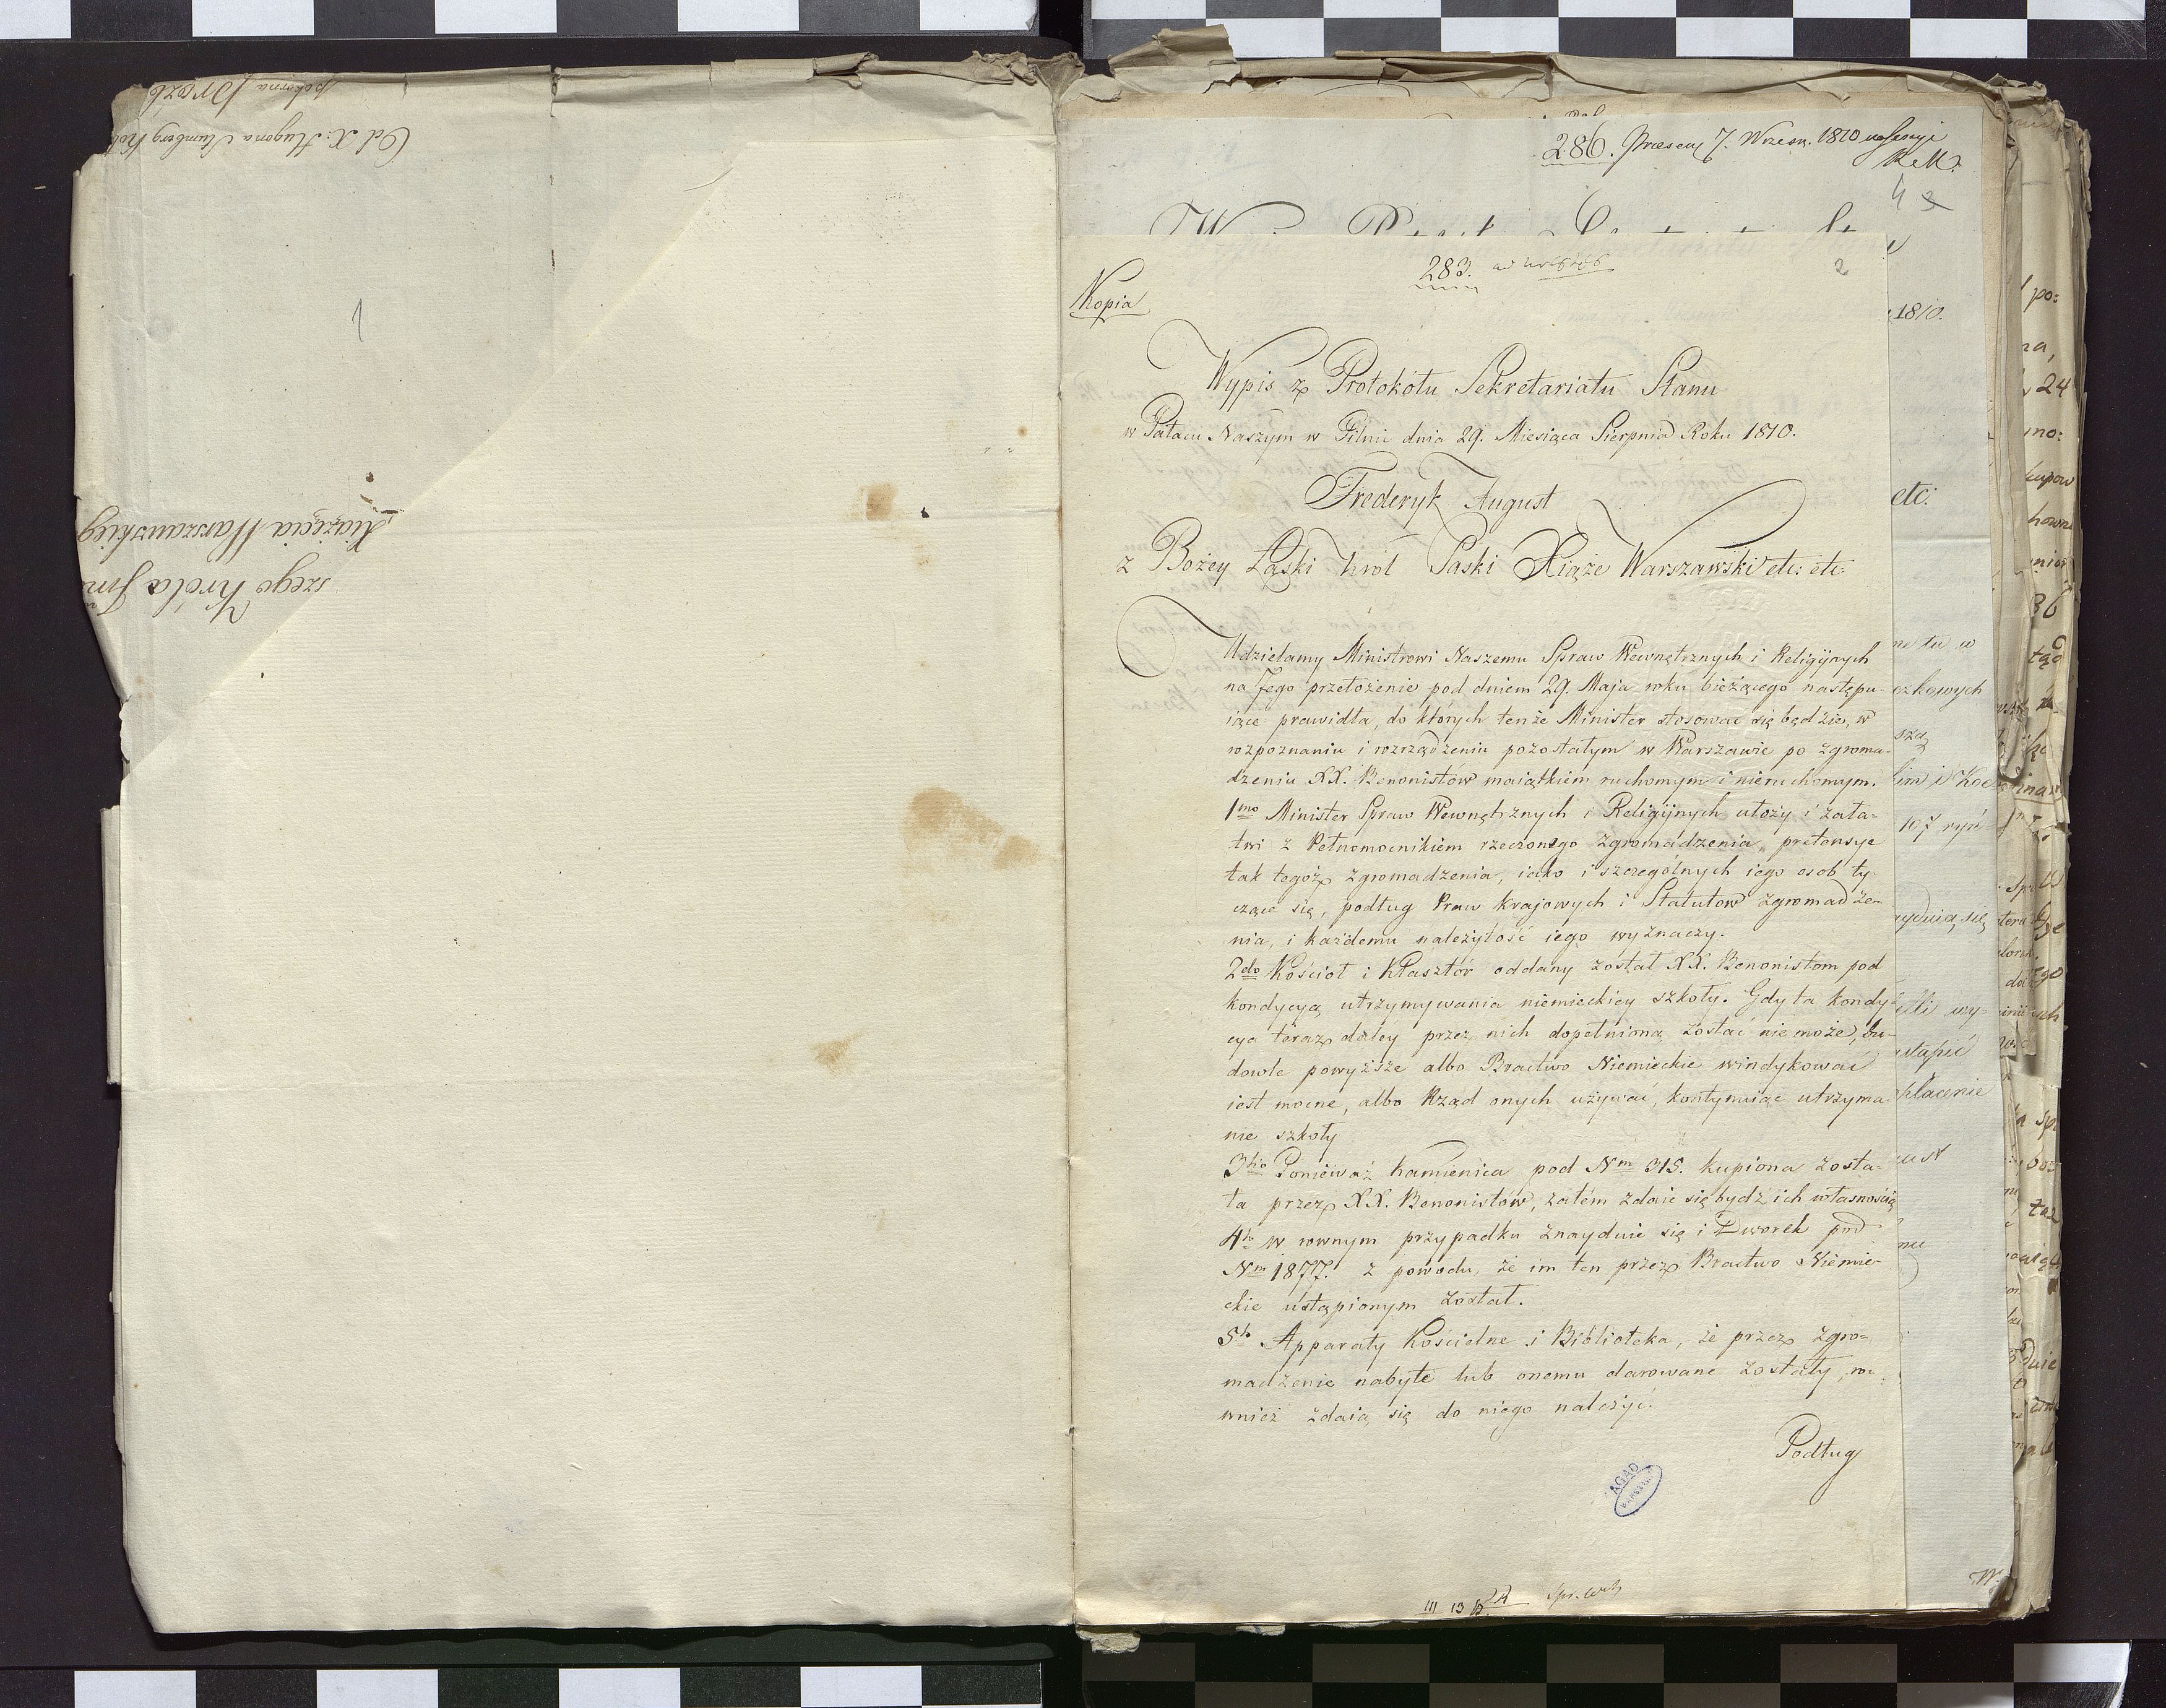 Od X: Hugona
pokorna Proźb
Xiązęcia Warszawskieg
szego Króla
1
286. Praesent 7. Wrześn. 1810 na Sessyi
4 3
283. ad
2
Kopia
1810.
Wypis z Protokółu Sekretariatu Stanu
w Pałacu Naszym w Pilnic dnia 29. Miesiąca Sierpnia Roku 1810.
Frederyk August
etc:
z Bożey Łaski Król Saski Xiąże Warszawski etc: etc:
Udzielamy Ministrowi Naszemu Spraw Wewnętrznych i Religijnych
na Jego przełożenie pod dniem 29. Maja roku bieżącego następu-
iące prawidła, do których tenże Minister stosować się będzie, w
rozpoznaniu i rozrządzeniu pozostałym w Warszawie po zgroma-
dzeniu XX. Benonistów maiątkiem ruchomym i nieruchomym.
1mo Minister Spraw Wewnętrznych i Religijnych ułoży i zała-
twi z Pełnomocnikiem rzeczonego Zgromadzenia pretensye
tak tegóż zgromadzenia, iako i szczególnych iego osób ty-
czące się, podług Praw krajowych i Statutow zgromadze-
nia, i każdemu należytość iego wyznaczy.
2do Kościoł i Klasztór oddany został XX. Benonistom pod
kondycyą utrzymywania niemieckiey szkoły. Gdy ta kondy-
cya teraz daley przez nich dopełnioną zostać nie może, bu-
dowle powyższe albo Bractwo Niemieckie windykować
iest mocne, albo Rząd onych używać, kontynuiąc utrzyma-
nie szkoły
3tio Ponieważ kamienica pod Nm 315. kupiona zosta-
ła przez XX. Benonistów, zatém zdaie się bydź ich własnością
4to w rownym przypadku znayduie się i Dworek pod
Nm 1877. z powodu, że im ten przez Bractwo Niemie-
ckie ustąpionym został.
5to Apparaty Kościelne i Biblioteka, że przez zgro-
madzenie nabyte lub onemu darowane zostały, ró-
wnież zdaią się do niego należyć.
Podług
AGAD
III 13